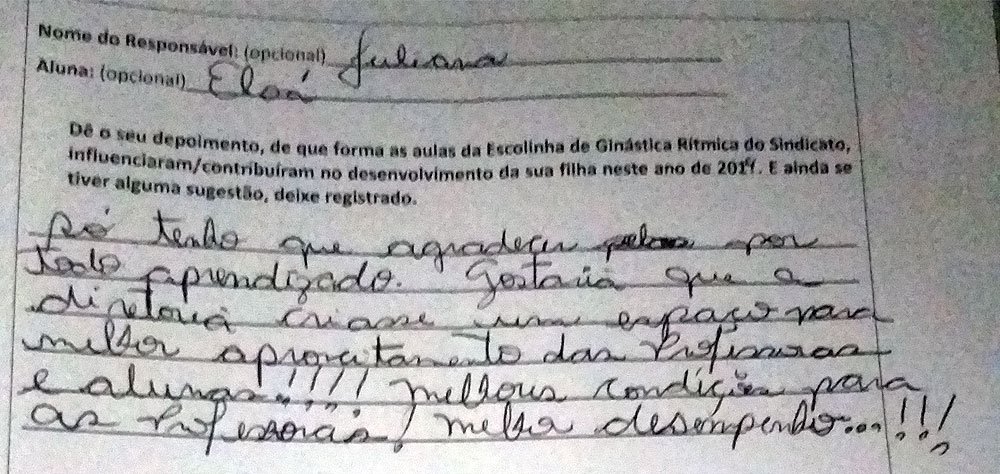 Nome do Responsável: (opcional) Juliana
Aluna: (opcional) Eloá
Dê o seu depoimento, de que forma as aulas da Escolinha de Ginástica Rítmica do Sindicato,
influenciaram/contribuíram no desenvolvimento da sua filha neste ano de 2014. E ainda se
tiver alguma sugestão, deixe registrado.
Só tenho que agradecer por
todo aprendizado. Gostaria que a
diretoria criasse um espaço para
melhor aproveitamento das Professoras
e alunas!!!! melhores condições para
as Professoras! melhor desempenho...!!!